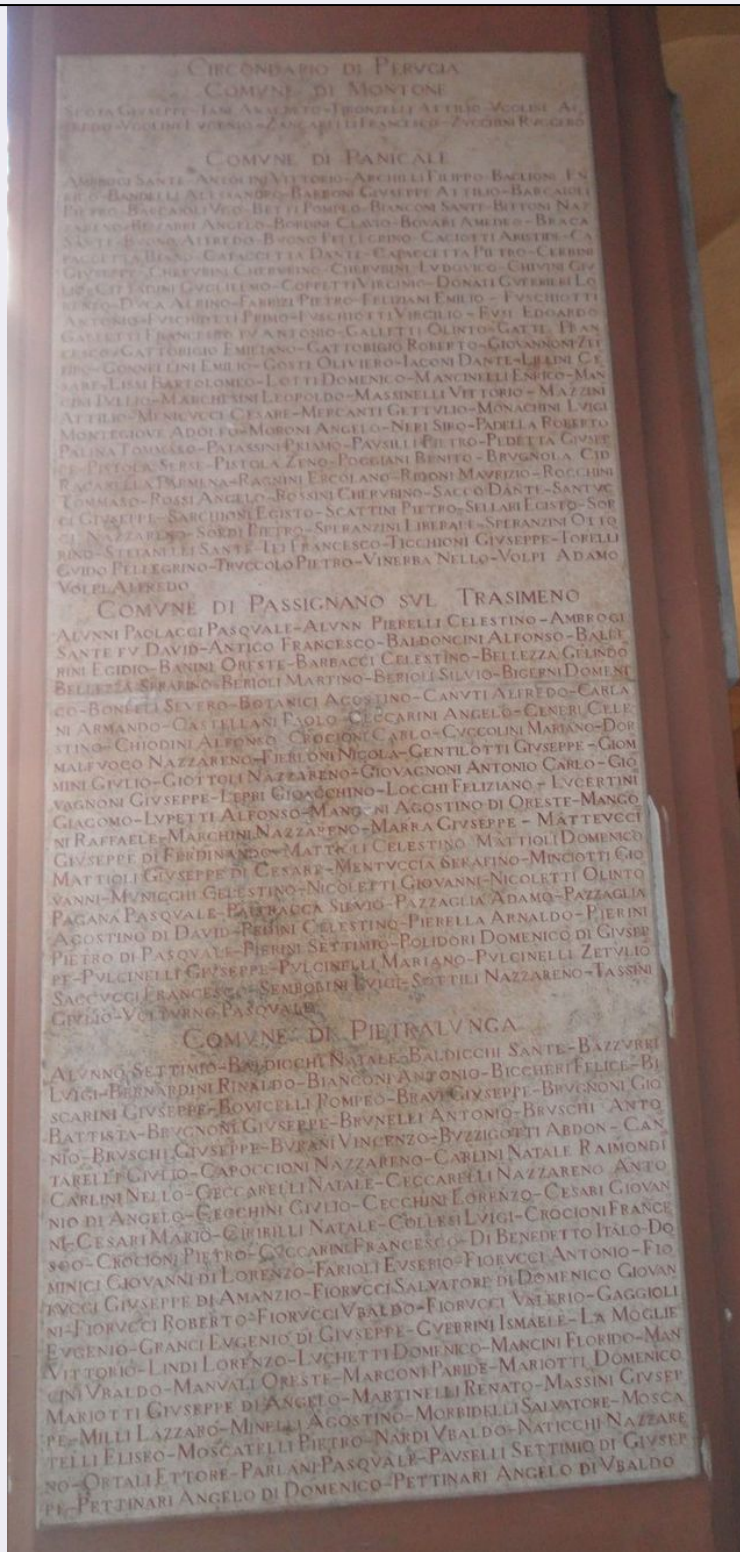 CIRCONDARIO DI PERVGIA
COMVNE DI MONTONE
GIVSEPPE- ATTILIO-VGOLINI
VGOLINI EVGENIO-ZANGARELLI FRANCESCO-ZVCCHINI RVGGERO
COMVNE DI PANICALE
AMBROGI SANTE-ANTOLINI VITTORIO-ARCHILLI FILIPPO-BAGLIONI EN
RICO-BANDELLI ALESSANDRO-BARBONI GIVSEPPE ATTILIO-BARCAIOLI
PIETRO-BARCAIOLI VGO-BETTI POMPEO-BIANCONI SANTE-BITTONI NAZ
ZARENO-BIZZARRI ANGELO-BORDINI CLAVIO-BOVARI AMEDEO-BRACA
SANTE-BVONO ALFREDO-BVONO PELLEGRINO-CACIOTTI ARISTIDE-CA
PACCETTA CAPACCETTA DANTE-CAPACCETTA PIETRO-CERBINI
GIVSEPPE-CHERVBINI CHERVBINO-CHERVBINI LVDOVICO-CHIVINI GIV
LIO-CITTADINI GVGLIELMO-COPPETTI VIRGINIO-DONATI GVERRIERI LO
RENZO-DVCA ALBINO-FABRIZI PIETRO-FELIZIANI EMILIO-FVSCHIOTTI
ANTONIO-FVSCHIOTTI PRIMO-FVSCHIOTTI VIRGILIO-FVSI EDOARDO
GALLETTI FRANCESCO FV ANTONIO-GALLETTI OLINTO-GATTI FRAN
CESCO-GATTOBIGIO EMILIANO-GATTOBIGIO ROBERTO-GIOVANNONI ZEF
FIRO-GONNELLINI EMILIO-GOSTI OLIVIERO-IACONI DANTE-LILLINI CE
SARE-LISSI BARTOLOMEO-LOTTI DOMENICO-MANCINELLI ENRICO-MAN
CINI TVLLIO-MARCHESINI LEOPOLDO-MASSINELLI VITTORIO-MAZZINI
ATTILIO-MENICVCCI CESARE-MERCANTI GETTVLIO-MONACHINI LVIGI
MONTEGIOVE ADOLFO-MORONI ANGELO-NERI SIRO-PADELLA ROBERTO
PALINA TOMMASO-PATASSINI PRIAMO-PAVSILLI PIETRO-PEDETTA GIVSEP
PE-PISTOLA SERSE-PISTOLA ZENO-POGGIANI BENITO-BRVGNOLA CID
RACANELLA PARMENA-RAGNINI ERCOLANO-RIDONI MAVRIZIO-ROCCHINI
TOMMASO-ROSSI ANGELO-ROSSINI CHERVBINO-SACCO DANTE-SANTVC
CI GIVSEPPE-SARCHIONI EGISTO-SCATTINI PIETRO-SELLARI EGISTO-SOR
CI NAZZARENO-SORDI PIETRO-SPERANZINI LIBERALE-SPERANZINI OTTO
RINO-STEFANELLI SANTE-TEI FRANCESCO-TICCHIONI GIVSEPPE-TORELLI
GVIDO PELLEGRINO-TRVCCOLO PIETRO-VINERBA NELLO-VOLPI ADAMO
VOLPI ALFREDO
COMVNE DI PASSIGNANO SVL TRASIMENO
ALVNNI PAOLACCI PASQVALE-ALVNN PIERELLI CELESTINO-AMBROGI
SANTE FV DAVID-ANTICO FRANCESCO-BALDONCINI ALFONSO-BALLE
RINI EGIDIO-BANINI ORESTE-BARBACCI CELESTINO-BELLEZZA GELINDO
BELLEZZA SERAFINO-BERIOLI MARTINO-BERIOLI SILVIO-BIGERNI DOMENI
CO-BONELLI SEVERO-BOTANICI AGOSTINO-CANVTI ALFREDO-CARLA
NI ARMANDO-CASTELLANI PAOLO-CECCARINI ANGELO-CENERI CELE
STINO-CHIODINI ALFONSO CROCIONI CARLO-CVCCOLINI MARIANO-DOR
MALFVOCO NAZZARENO-FIERLONI NICOLA-GENTILOTTI GIVSEPPE-GIOM
MINI GIVLIO-GIOTTOLI NAZZARENO-GIOVAGNONI ANTONIO CARLO-GIO
VAGNONI GIVSEPPE-LEPRI GIOACCHINO-LOCCHI FELIZIANO-LVCERTINI
GIACOMO-LVPETTI ALFONSO-MANGONI AGOSTINO DI ORESTE-MANGO
NI RAFFAELE-MARCHINI NAZZARENO-MARRA GIVSEPPE-MATTEVCCI
GIVSEPPE DI FERDINANDO-MATTIOLI CELESTINO MATTIOLI DOMENICO
MATTIOLI GIVSEPPE DI CESARE-MENTVCCIA SERAFINO-MINCIOTTI GIO
VANNI-MVNICCHI CELESTINO-NICOLETTI GIOVANNI-NICOLETTI OLINTO
PAGANA PASQVALE-PALTRACCA SILVIO-PAZZAGLIA ADAMO-PAZZAGLIA
AGOSTINO DI DAVID-PEDINI CELESTINO-PIERELLA ARNALDO-PIERINI
PIETRO DI PASQVALE-PIERINI SETTIMIO-POLIDORI DOMENICO DI GIVSEP
PE-PVLCINELLI GIVSEPPE-PVLCINELLI MARIANO-PVLCINELLI ZETVLIO
SACCVCCI FRANCESCO-SEMBOLINI LVIGI-SOTTILI NAZZARENO-TASSINI
GIVLIO-VOLTVRNO PASQVALE
COMVNE DI PIETRALVNGA
ALVNNO SETTIMIO-BALDICCHI NATALE-BALDICCHI SANTE-BAZZVRRI
LVIGI-BERNARDINI RINALDO-BIANCONI ANTONIO-BICCHERI FELICE-BI
SCARINI GIVSEPPE-BOVICELLI POMPEO-BRAVI GIVSEPPE-BRVGNONI GIO
BATTISTA-BRVGNONI GIVSEPPE-BRVNELLI ANTONIO-BRVSCHI ANTO
NIO-BRVSCHI GIVSEPPE-BVRANI VINCENZO-BVZZIGOTTI ABDON-CAN
TARELLI GIVLIO-CAPOCCIONI NAZZARENO-CARLINI NATALE RAIMONDI
CARLINI NELLO-CECCARELLI NATALE-CECCARELLI NAZZARENO ANTO
NIO DI ANGELO-CECCHINI GIVLIO-CECCHINI LORENZO-CESARI GIOVAN
NI-CESARI MARIO-CIRIBILLI NATALE-COLLESI LVIGI-CROCIONI FRANCE
SCO-CROCIONI PIETRO-CVCCARINI FRANCESCO-DI BENEDETTO ITALO-DO
MINICI GIOVANNI DI LORENZO-FARIOLI EVSEBIO-FIORVCCI ANTONIO-FIO
RVCCI GIVSEPPE DI AMANZIO-FIORVCCI SALVATORE DI DOMENICO GIOVAN
NI-FIORVCCI ROBERTO-FIORVCCI VBALDO-FIORVCCI VALERIO-GAGGIOLI
EVGENIO-GRANCI EVGENIO DI GIVSEPPE-GVERRINI ISMAELE-LA MOGLIE
VITTORIO-LINDI LORENZO-LVCHETTI DOMENICO-MANCINI FLORIDO-MAN
CINI VBALDO-MANVALI ORESTE-MARCONI PARIDE-MARIOTTI DOMENICO
MARIOTTI GIVSEPPE DI ANGELO-MARTINELLI RENATO-MASSINI GIVSEP
PE-MILLI LAZZARO-MINELLI AGOSTINO-MORBIDELLI SALVATORE-MOSCA
TELLI ELISEO-MOSCATELLI PIETRO-NARDI VBALDO-NATICCHI NAZZARE
NO-ORTALI ETTORE-PARLANI PASQVALE-PAVSELLI SETTIMIO DI GIVSEP
PE-PETTINARI ANGELO DI DOMENICO-PETTINARI ANGELO DI VBALDO